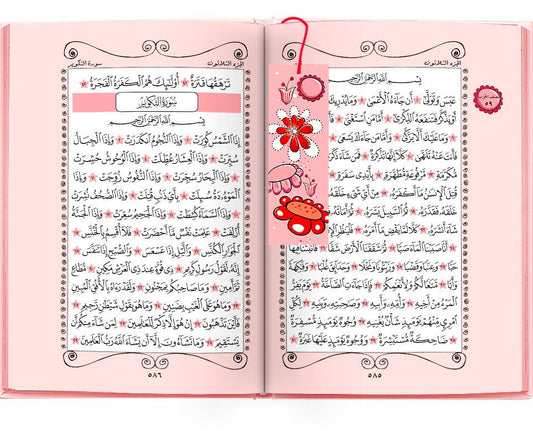 الجزء الثلاثون
بِسْمِ اللَّهِ الرَّحْمَٰنِ الرَّحِيمِ
عَبَسَ وَتَوَلَّىٰ ۝ أَن جَاءَهُ الْأَعْمَىٰ ۝ وَمَا يُدْرِيكَ
أَوْ يَذَّكَّرُ فَتَنفَعَهُ الذِّكْرَىٰ ۝ أَمَّا مَنِ اسْتَغْنَىٰ
وَمَا عَلَيْكَ أَلَّا يَزَّكَّىٰ ۝ وَأَمَّا مَن جَاءَكَ يَسْعَىٰ
فَأَنتَ عَنْهُ تَلَهَّىٰ ۝ كَلَّا إِنَّهَا تَذْكِرَةٌ ۝ فَمَن شَاءَ ذَكَرَهُ
مُّكَرَّمَةٍ ۝ مَّرْفُوعَةٍ مُّطَهَّرَةٍ ۝ بِأَيْدِي سَفَرَةٍ
قُتِلَ الْإِنسَٰنُ مَا أَكْفَرَهُ ۝ مِنْ أَيِّ شَيْءٍ خَلَقَهُ
خَلَقَهُ فَقَدَّرَهُ ۝ ثُمَّ السَّبِيلَ يَسَّرَهُ ۝ ثُمَّ أَمَاتَهُ
أَنشَرَهُ ۝ كَلَّا لَمَّا يَقْضِ مَا أَمَرَهُ
أَنَّا صَبَبْنَا الْمَاءَ صَبًّا ۝ ثُمَّ شَقَقْنَا الْأَرْضَ شَقًّا ۝ فَأَنبَتْنَا فِيهَا
حَبًّا ۝ وَعِنَبًا وَقَضْبًا ۝ وَزَيْتُونًا وَنَخْلًا ۝ وَحَدَائِقَ غُلْبًا ۝ وَفَٰكِهَةً
وَأَبًّا ۝ مَّتَٰعًا لَّكُمْ وَلِأَنْعَٰمِكُمْ ۝ فَإِذَا جَاءَتِ الصَّاخَّةُ ۝ يَوْمَ يَفِرُّ
الْمَرْءُ مِنْ أَخِيهِ ۝ وَأُمِّهِ وَأَبِيهِ ۝ وَصَٰحِبَتِهِ وَبَنِيهِ ۝ لِكُلِّ
امْرِئٍ مِّنْهُمْ يَوْمَئِذٍ شَأْنٌ يُغْنِيهِ ۝ وُجُوهٌ يَوْمَئِذٍ مُّسْفِرَةٌ
ضَاحِكَةٌ مُّسْتَبْشِرَةٌ ۝ وَوُجُوهٌ يَوْمَئِذٍ عَلَيْهَا غَبَرَةٌ
٥٨٥
الجزء الثلاثون
سورة التكوير
تَرْهَقُهَا قَتَرَةٌ ۝ أُولَٰئِكَ هُمُ الْكَفَرَةُ الْفَجَرَةُ
سُورَةُ التَّكْوِيرِ
بِسْمِ اللَّهِ الرَّحْمَٰنِ الرَّحِيمِ
إِذَا الشَّمْسُ كُوِّرَتْ ۝ وَإِذَا النُّجُومُ انكَدَرَتْ ۝ وَإِذَا الْجِبَالُ
سُيِّرَتْ ۝ وَإِذَا الْعِشَارُ عُطِّلَتْ ۝ وَإِذَا الْوُحُوشُ حُشِرَتْ
۝ وَإِذَا الْبِحَارُ سُجِّرَتْ ۝ وَإِذَا النُّفُوسُ زُوِّجَتْ ۝ وَإِذَا
الْمَوْءُودَةُ سُئِلَتْ ۝ بِأَيِّ ذَنبٍ قُتِلَتْ ۝ وَإِذَا الصُّحُفُ نُشِرَتْ
۝ وَإِذَا السَّمَاءُ كُشِطَتْ ۝ وَإِذَا الْجَحِيمُ سُعِّرَتْ ۝ وَإِذَا الْجَنَّةُ
أُزْلِفَتْ ۝ عَلِمَتْ نَفْسٌ مَّا أَحْضَرَتْ ۝ فَلَا أُقْسِمُ بِالْخُنَّسِ
۝ الْجَوَارِ الْكُنَّسِ ۝ وَالَّيْلِ إِذَا عَسْعَسَ ۝ وَالصُّبْحِ إِذَا تَنَفَّسَ
۝ إِنَّهُ لَقَوْلُ رَسُولٍ كَرِيمٍ ۝ ذِي قُوَّةٍ عِندَ ذِي الْعَرْشِ مَكِينٍ ۝
مُّطَاعٍ ثَمَّ أَمِينٍ ۝ وَمَا صَاحِبُكُم بِمَجْنُونٍ ۝ وَلَقَدْ رَءَاهُ بِالْأُفُقِ الْمُبِينِ
۝ وَمَا هُوَ عَلَى الْغَيْبِ بِضَنِينٍ ۝ وَمَا هُوَ بِقَوْلِ شَيْطَٰنٍ رَّجِيمٍ
۝ فَأَيْنَ تَذْهَبُونَ ۝ إِنْ هُوَ إِلَّا ذِكْرٌ لِّلْعَٰلَمِينَ ۝ لِمَن شَاءَ مِنكُمْ أَن
يَسْتَقِيمَ ۝ وَمَا تَشَاءُونَ إِلَّا أَن يَشَاءَ اللَّهُ رَبُّ الْعَٰلَمِينَ
٥٨٦